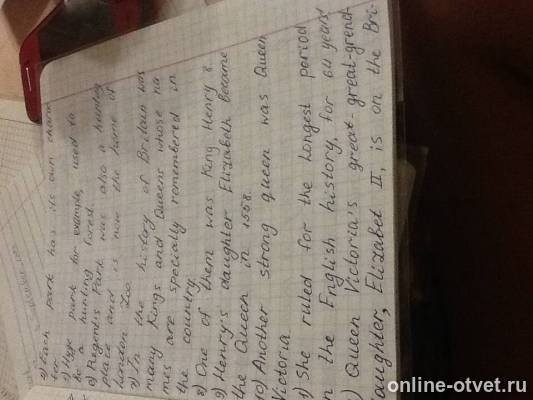 4) Each park has its own charac
ter.
5) Hyge park for example, used to
be a hunting forest.
6) Regent's Park was also a hunting
place and is now the home of
London Zoo.
7) In the history of Britain was
many Kings and Queens whose na
mes are specially remembered in
the country.
8) One of them was King Henry 8.
9) Henry's daughter Elizabeth became
the Queen in 1558.
10) Another strong queen was Queen
Victoria
1) She ruled for the longest period
n the English history, for 64 years
) Queen Victoria's great-great-grend-
aughter, Elizabet II, is on the Bri-
online-otvet.ru